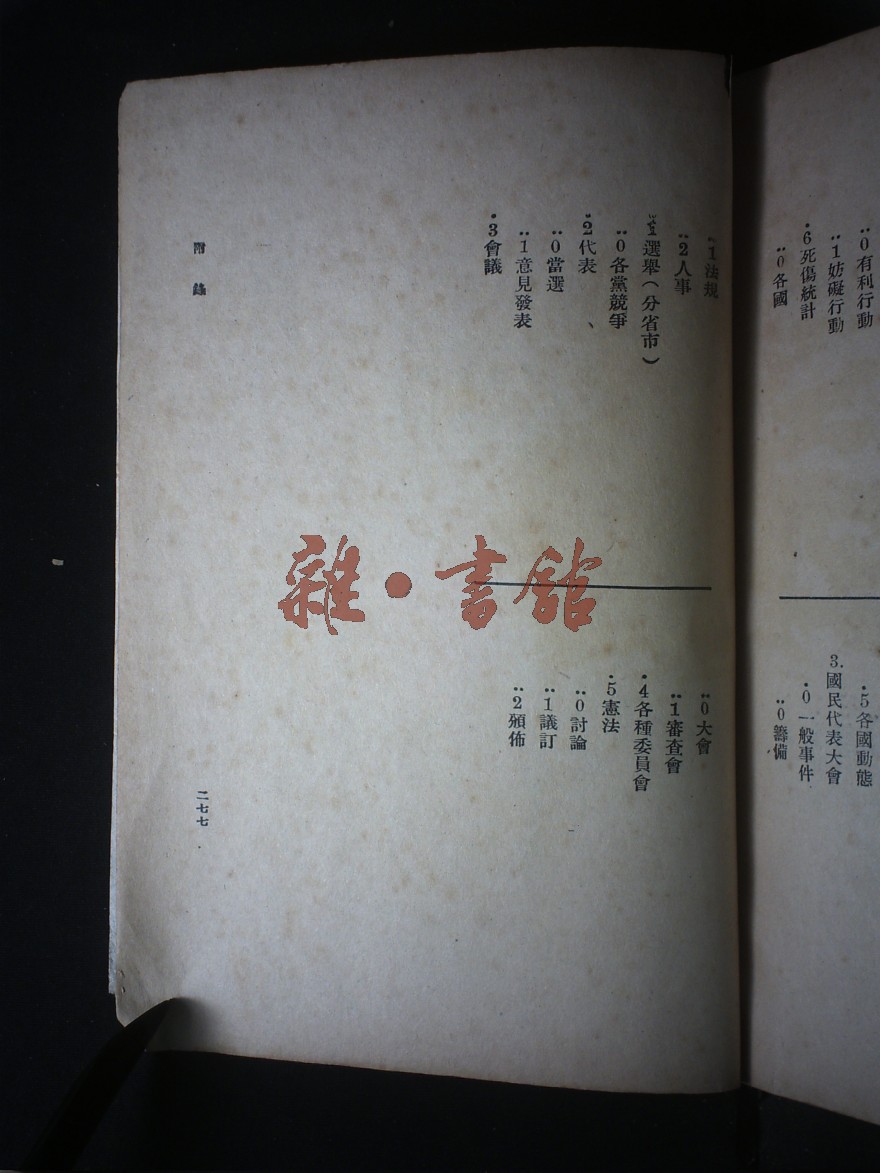 ..0有利行動
..1妨礙行動
.6死傷統計
..0各國
.5各國動態
3.國民代表大會
.0一般事件
..0籌備
..1法規
..2人事
.1選舉(分省市)
..0各黨競爭
.2代表、
..0當選
..1意見發表
.3會議
..0大會
..1審查會
.4各種委員會
.5憲法
..0討論
..1議訂
..2頒佈
附錄
二七七
雜·書館